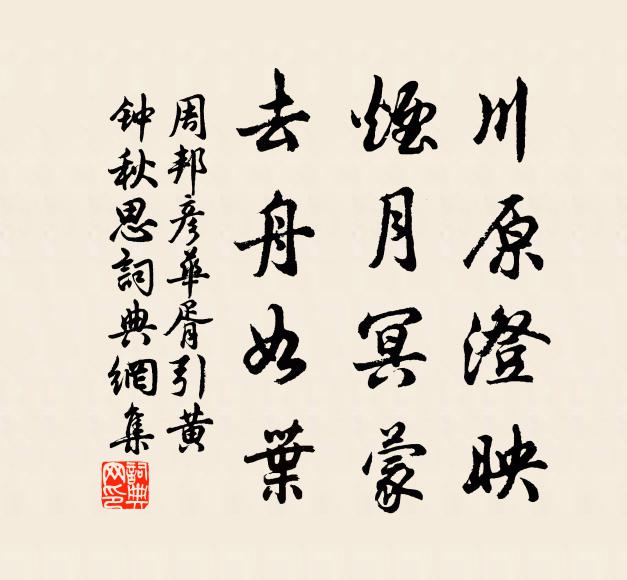 川原澄映
煙月冥蒙
去舟如葉
周邦彥華胥引黃
钟秋思詞典網集
詞典网印